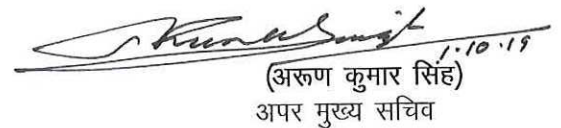 1.10.19
(अरूण कुमार सिंह)
अपर मुख्य सचिव